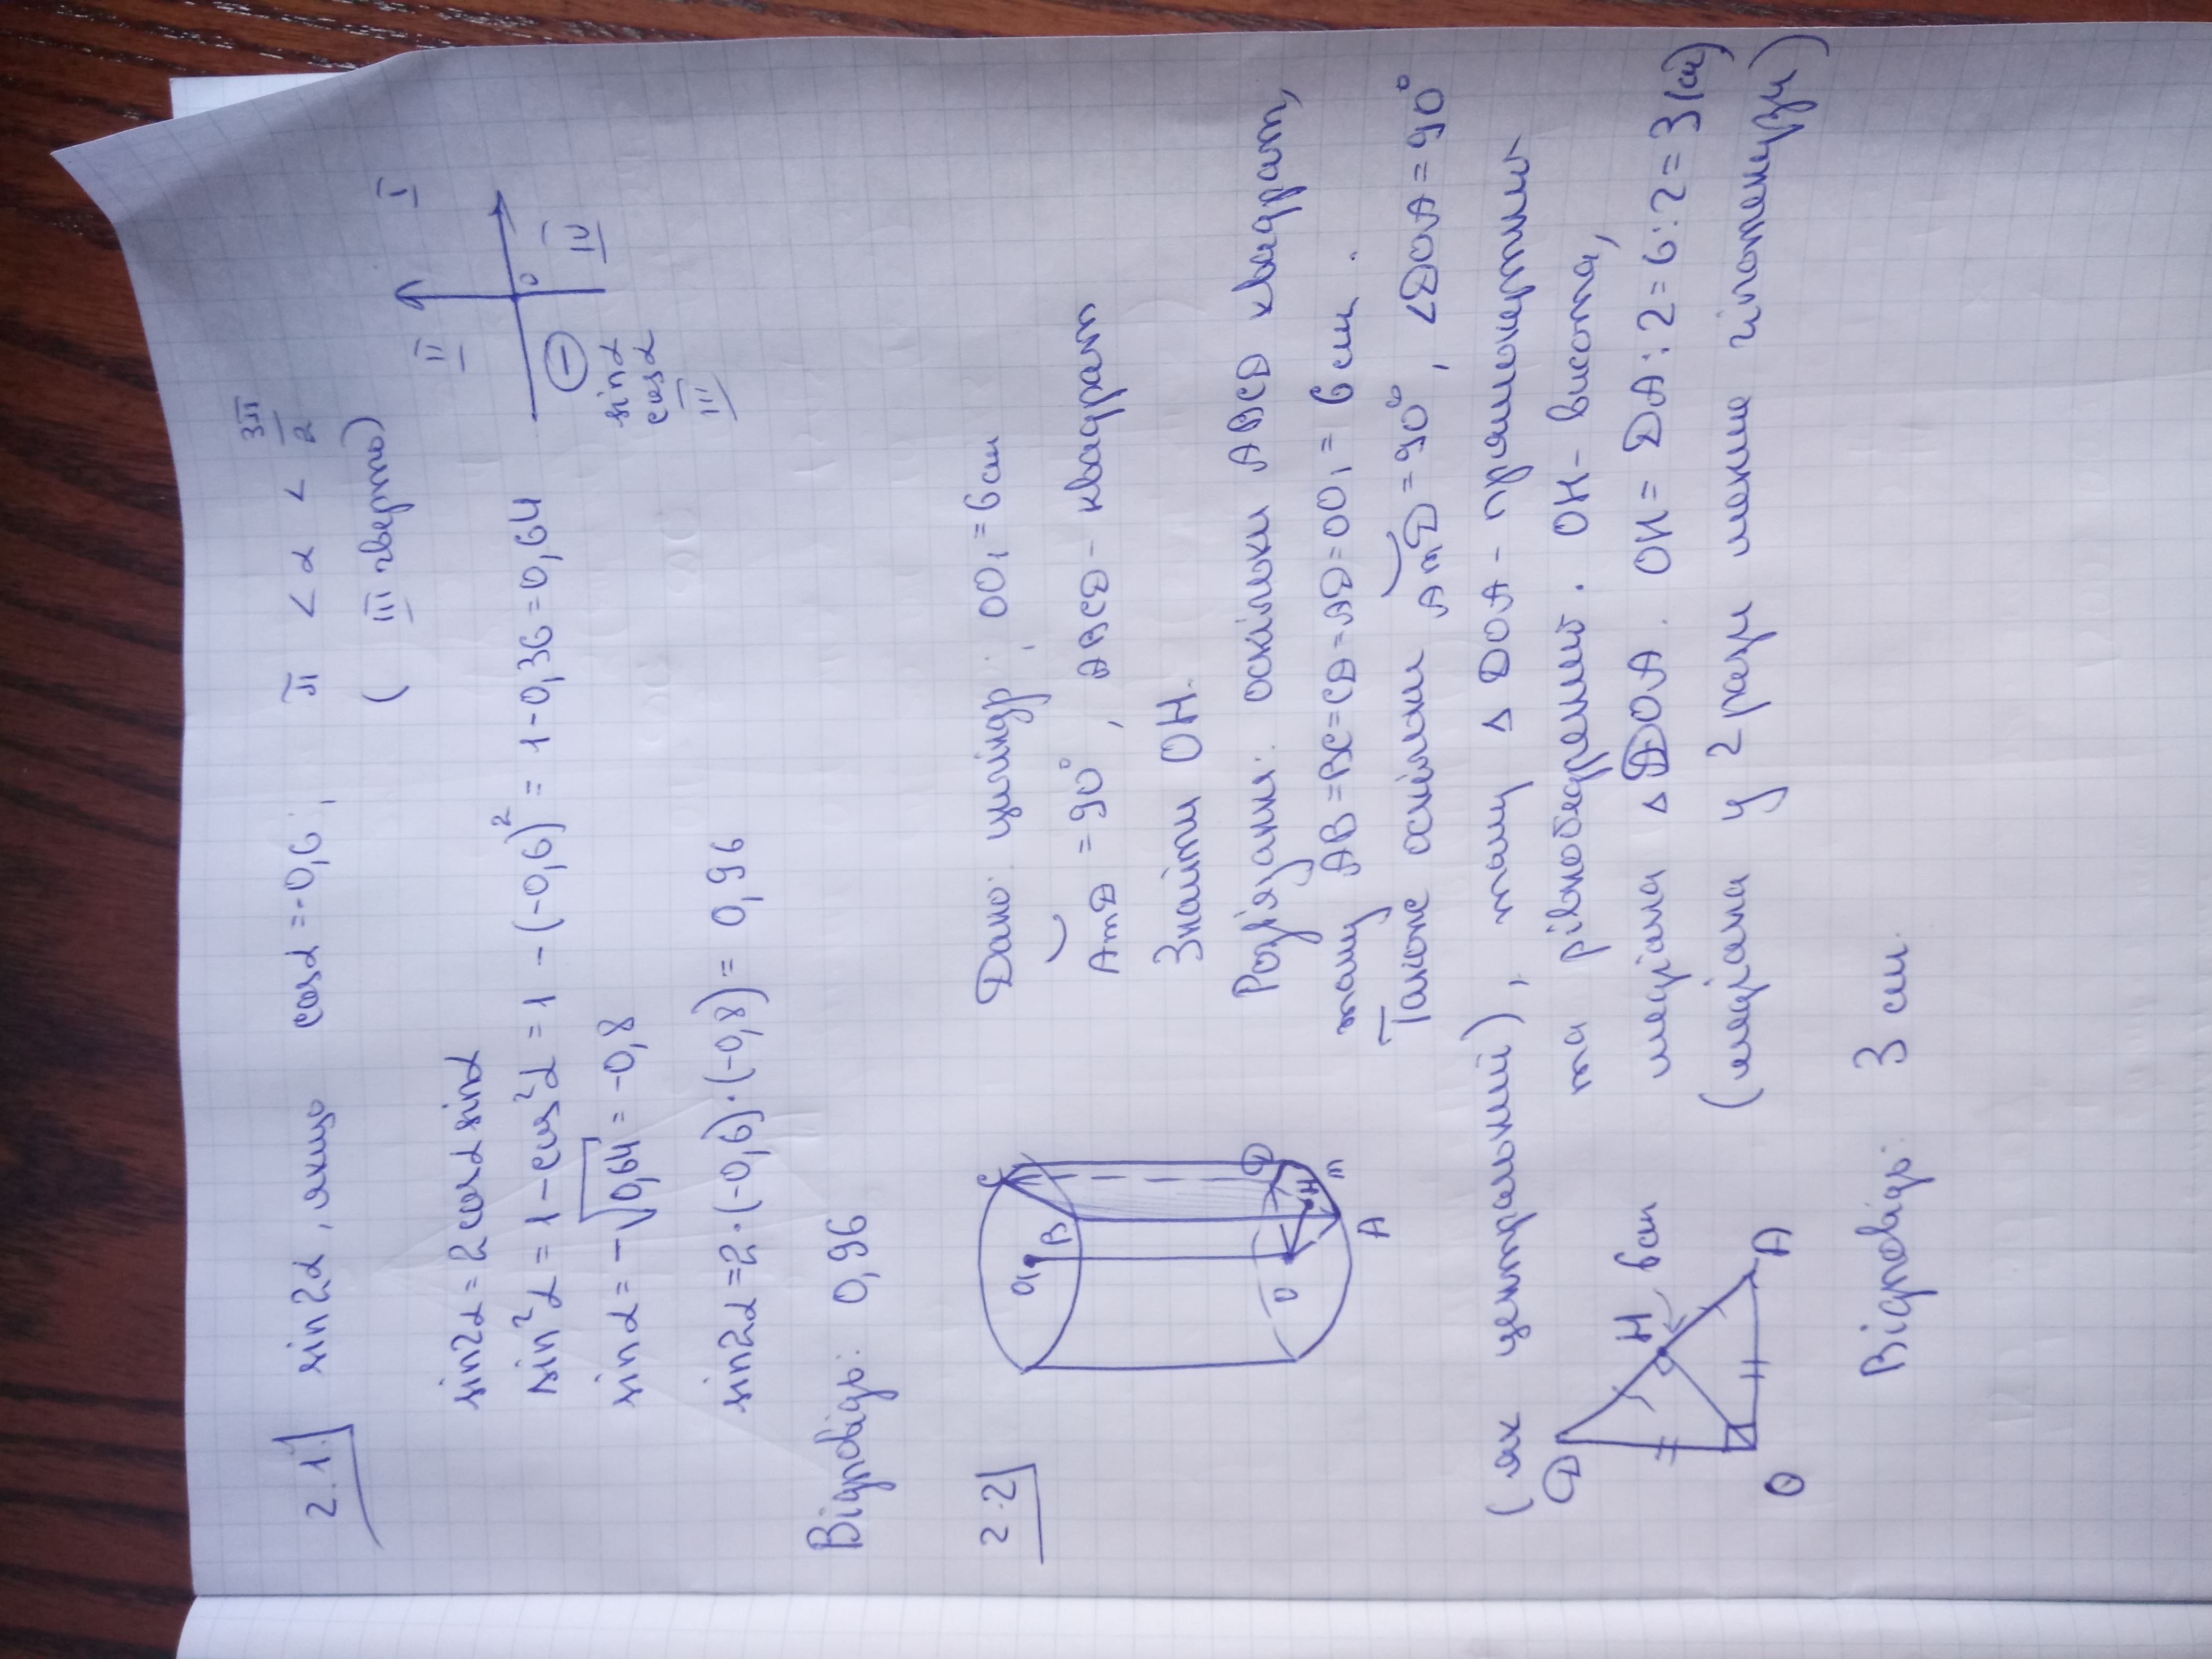 2.1. sin2α, якщо cosα = -0,6; π < α < 3π/2
( III чверть)
II I
0
- IV
sinα
cosα
III
sin2α = 2cosα sinα
sin²α = 1 - cos²α = 1 - (-0,6)² = 1 - 0,36 = 0,64
sinα = -√0,64 = -0,8
sin2α = 2·(-0,6)·(-0,8) = 0,96
Відповідь: 0,96
2.2 Дано: циліндр; OO₁ = 6 см
AmD = 90°, ABCD - квадрат
Знайти OH.
Розв'язання: оскільки ABCD квадрат,
тому AB = BC = CD = AD = OO₁ = 6 см.
Також оскільки AmD = 90°, ∠DOA = 90°
(як центральний), тому △ DOA - прямокутний
та рівнобедрений. OH - висота,
медіана △ DOA. OH = DA : 2 = 6 : 2 = 3 (см)
(медіана у 2 рази менше гіпотенузи)
O₁ B C
O H D
A m
D H 6 см
O A
Відповідь: 3 см.